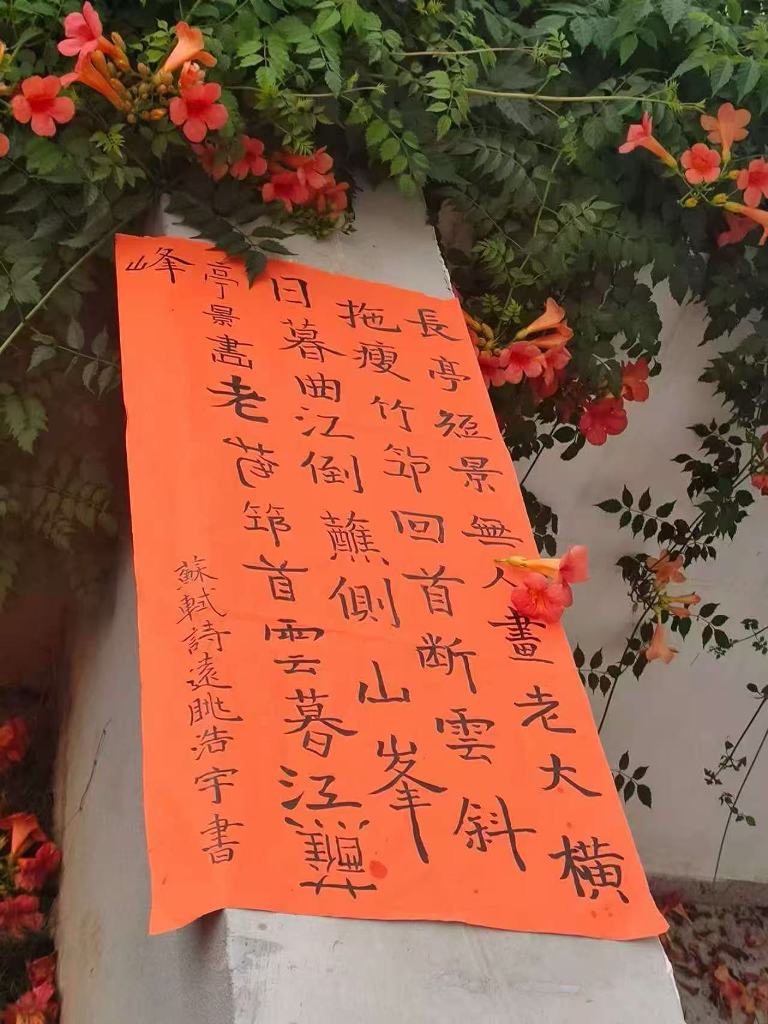 長亭短景無人畫老大橫
拖瘦竹筇回首断雲斜
日暮曲江倒蘸側山峯
亭景畫老筇首雲暮江蘸
峰
蘇軾詩遠眺浩宇書